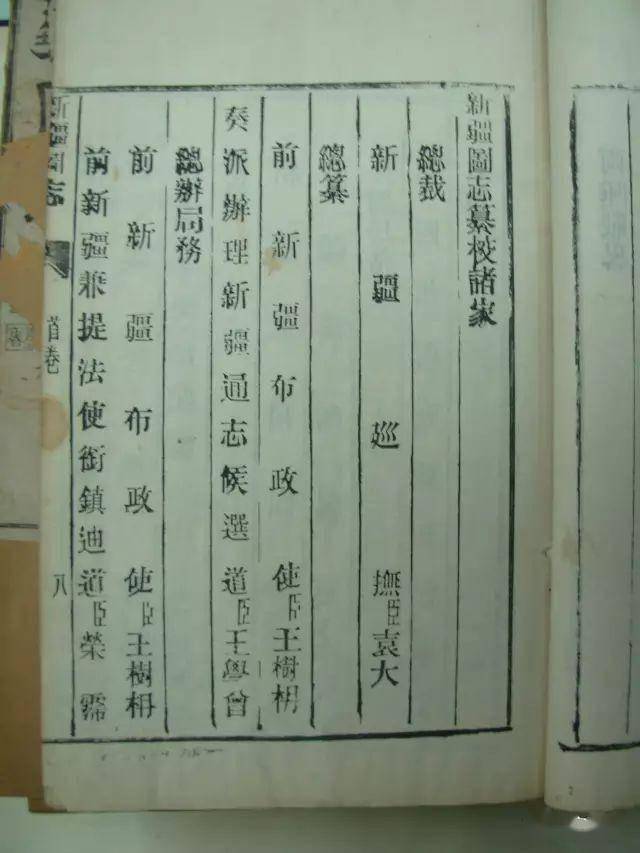 新疆圖志纂校諸家
總裁
新疆巡撫臣袁大
總纂
前新疆布政使臣王樹枏
奏派辦理新疆通志候選道臣王學曾
總辦局務
前新疆布政使臣王樹枏
前新疆兼提法使銜鎮迪道臣榮霈
新疆圖志
首卷
八